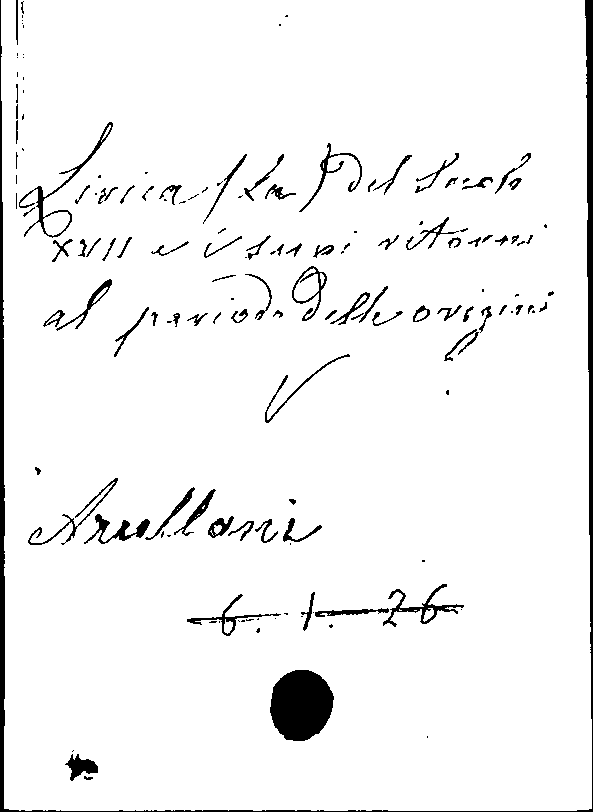 Lirica (La) del Secolo
XVII e i suoi ritorni
al periodo delle origini
V
Arullani
6. 1. 26